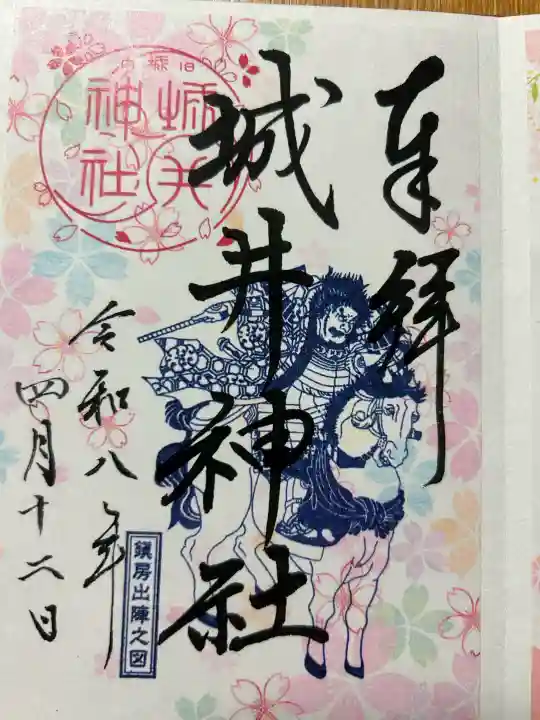 奉拝
城井神社
令和八年
四月十二日
城井
神社
鎮房出陣之図